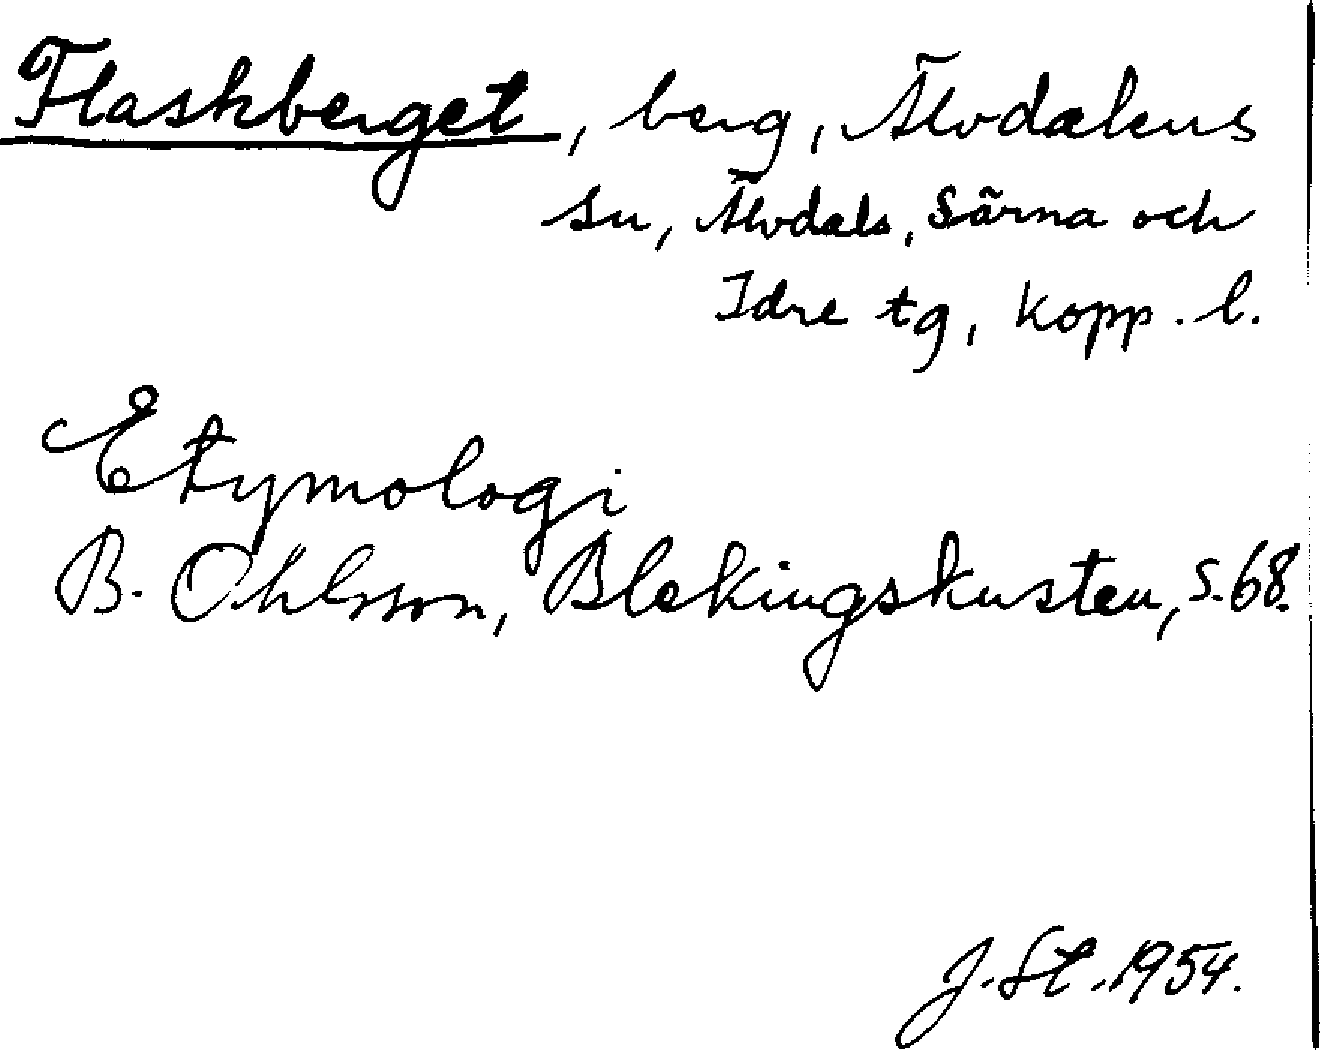 Flaskberget, berg, Älvdalens
sn, Älvdals, Särna och
Idre tg, Kopp. l.
Etymologi
B. Ohlsson, Blekingskusten, s. 68.
J. St. 1954.